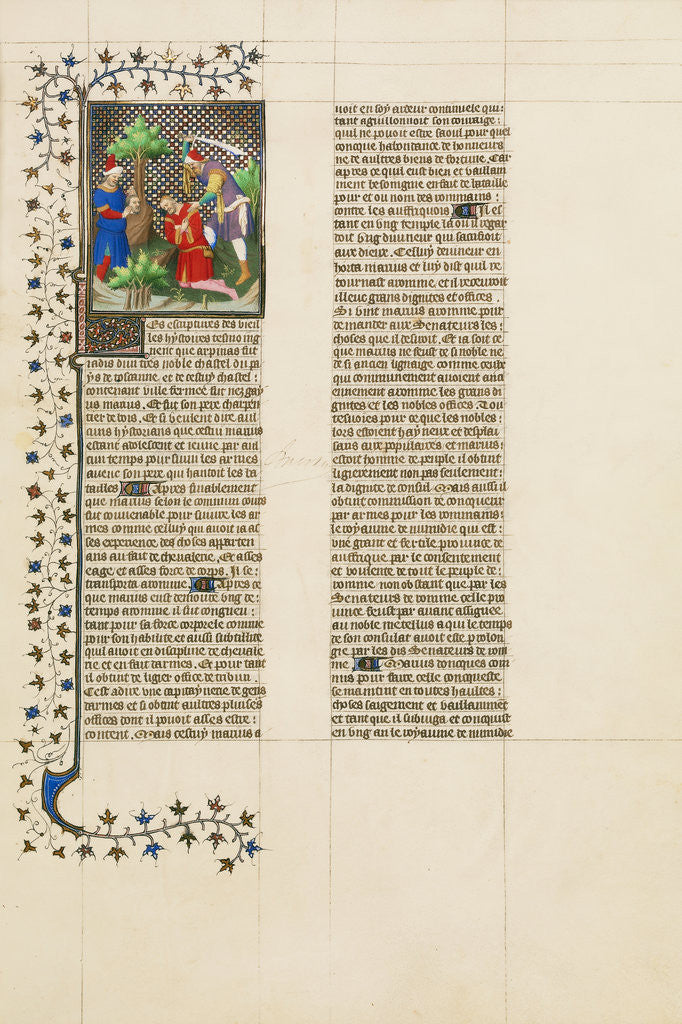 Es escriptures des vieil
les hystoires tesmoing
nent que arpinas fut
iadis dun tres noble chastel du pa
ys de toscanne. et de cestuy chastel:
contenant ville fermee fut nez gay
us marius. Et fut son pere charpen
tier de bois. Et si veulent dire aul
cuns hystorians que cestui marius
estant adolescent et ieune par aul
cun temps pour suivi les armes
avecc son pere qui hantoit les ba
tailles Apres finablement
que marius selon le commun cours
fut convenable pour suivre les ar
mes comme celluy qui avoit ia as
ses experience des choses apparten
ans au fait de chevalerie. Et asses
eage et asses force de corps. Il se:
transporta a romme. Apres ce
que marius eust demoure ung de:
temps a romme il fut congneu:
tant pour sa force corporele comme
pour son habilite et aussi subtilite
quil avoit en discipline de chevale
rie et en fait darmes. Et pour tant
il obtint de ligier office de tribun.
Cest adire une capitaynerie de gens
darmes et si obtint aultres pluises
offices dont il povoit asses estre:
content. Mais cestuy marius a
voit en soy ardeur continuele qui:
tant aguillonnoit son couraige:
quil ne povoit estre saoul pour quel
conque habontance de honneurs
ne de aultres biens de fortune. Car
apres ce quil eust bien et vaillam
ment besoingnie en fait de bataille
pour et ou nom des rommains:
contre les auffriquois Il es
tant en ung temple la ou il regar
doit ung divineur qui sacrifioit
aux dieux. Cestuy devineur en
horta marius et luy dist quil re
tournast a romme. et il recevroit
illeuc grans dignites et offices.
Si vint marius a romme pour
demander aux Senateurs les:
choses que il desiroit. Et ia soit ce
que marius ne feust de si noble ne
de si ancien lignaige comme ceulx
qui communement avoient anci
ennement a romme les grans di
gnites et les nobles offices. Tou
tesvoies pour ce que les nobles:
lors estoient hayneux et desplai
sans aux populaires et marius:
estoit homme de peuple il obtint
legierement non pas seulement:
la dignite de consul. Mais aussi il
obtint commission de conquerir
par armes pour les rommains:
le royaume de numidie qui est:
une grant et fertile province de
auffrique. par le consentement
et voulente de tout le peuple de:
romme non obstant que par les
Senateurs de romme celle pro
vince feust par avant assignee.
au noble metellus a qui le temps
de son consulat avoit este prolon
gie par les dis Senateurs de rom
me. Marius doncques com
mis pour faire celle conqueste.
se maintint en toutes haultes:
choses saigement et vaillamment
et tant que il subiuga et conquist
en ung an le royaume de numidie